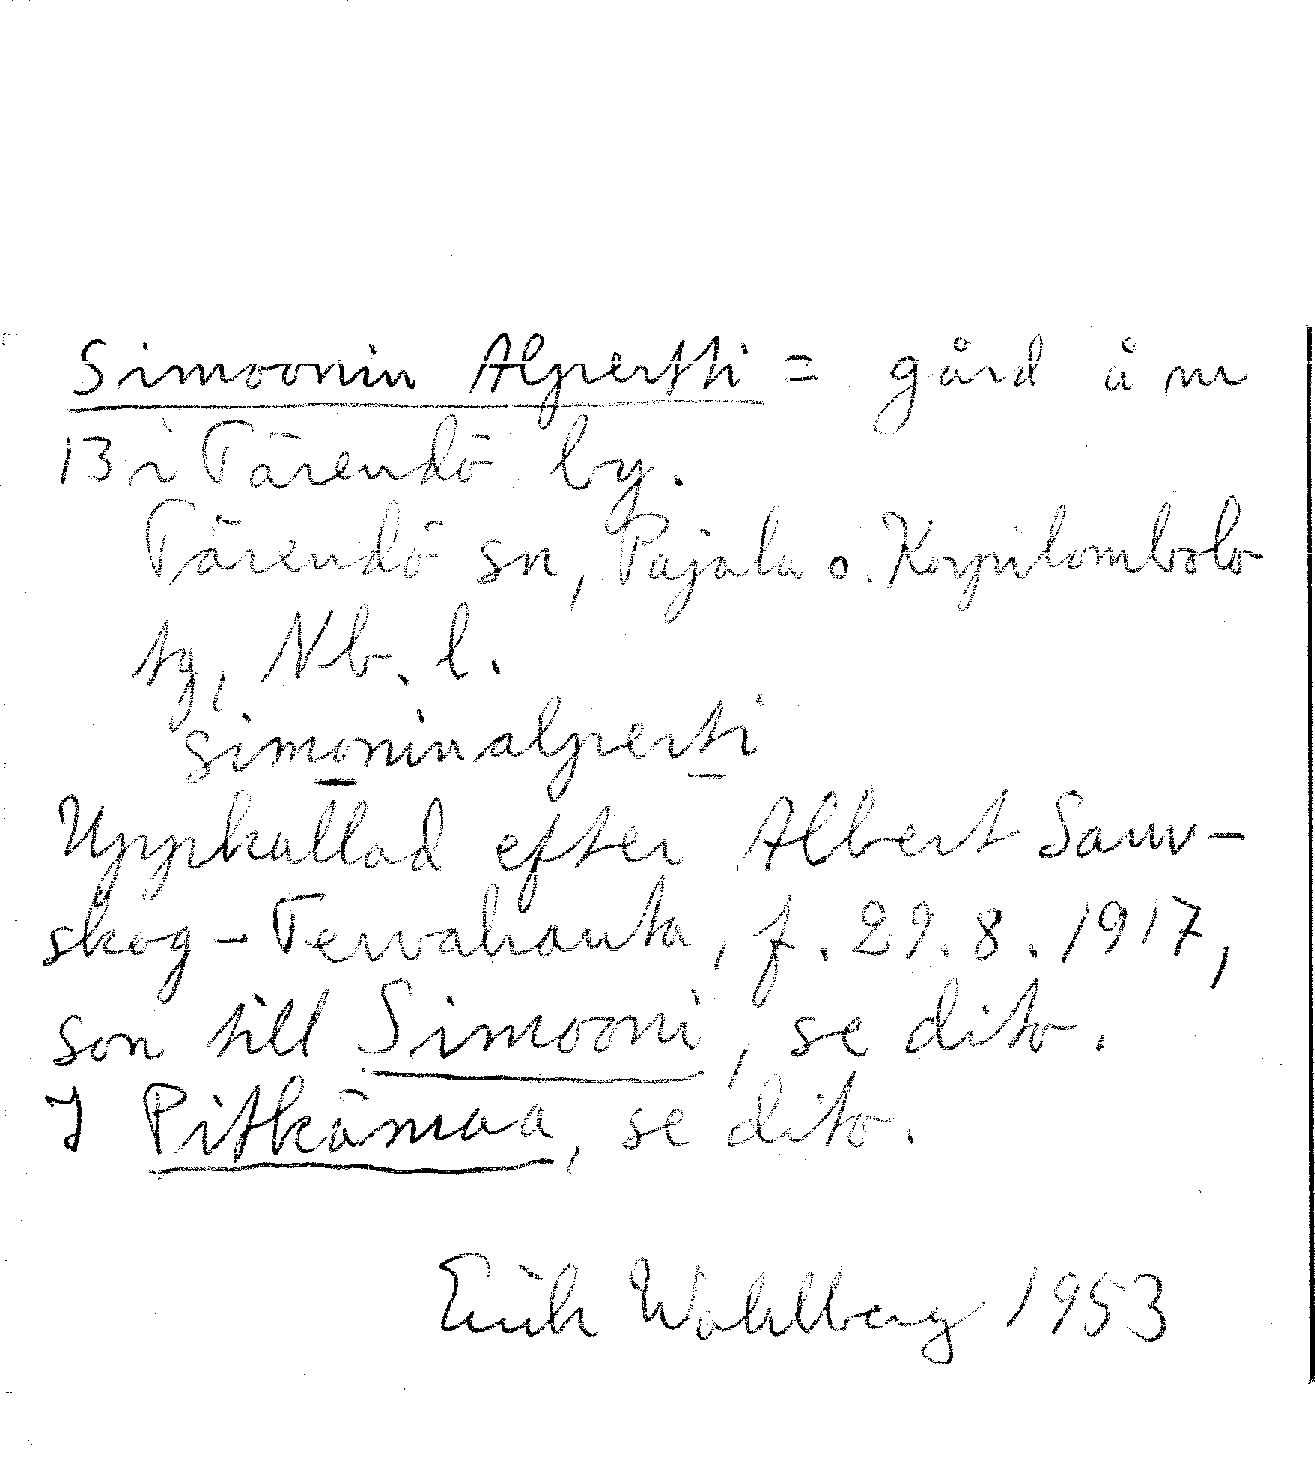 Simoonin Alpertti = gård å nr
13 i Tärendö by.
Tärendö sn, Pajala o. Korpilombolo
tg, Nb. l.
simoninalperti
Uppkallad efter Albert Sauv-
skog-Tervahauta, f. 29.8.1917,
son till Simooni, se dito.
I Pitkämaa, se dito.
Erik Wahlberg 1953